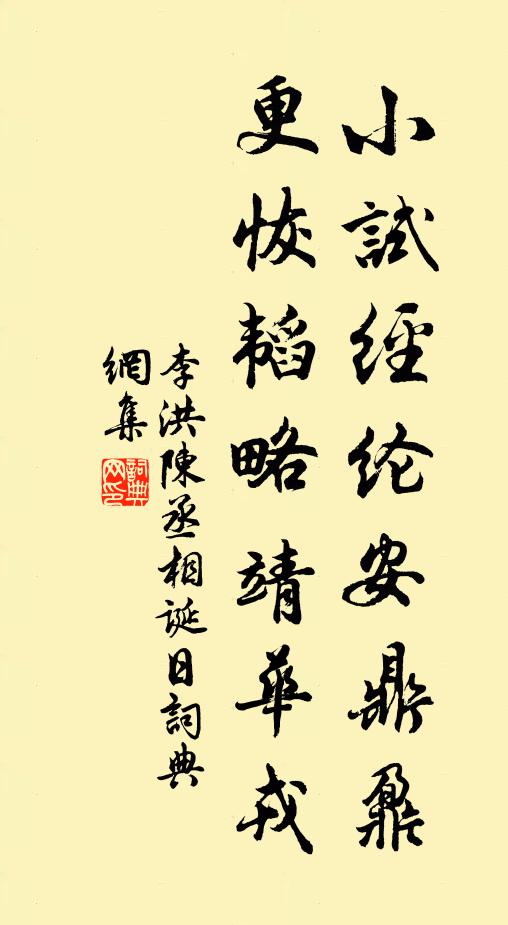 小試經纶安鼎鼐
更恢韬略靖華戎
李洪陳丞相誕日詞典
網集
詞典
网印